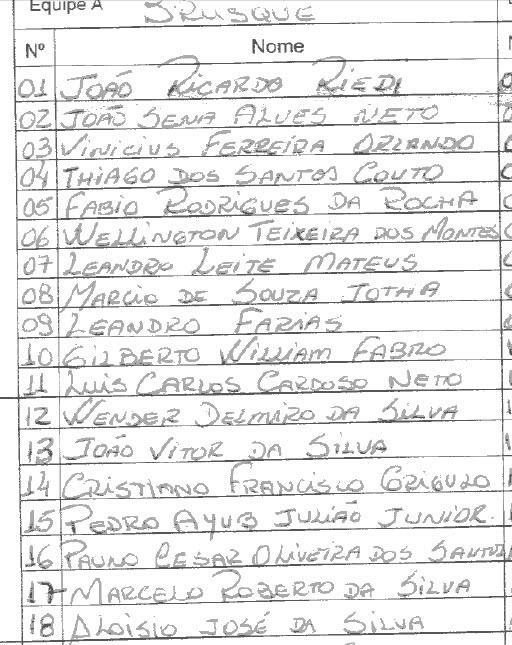 Equipe A BRUSQUE
Nº Nome
01 JOÃO RICARDO RIEDI
02 JOÃO SENA ALVES NETO
03 VINICIUS FERREIRA ORLANDO
04 THIAGO DOS SANTOS COUTO
05 FABIO RODRIGUES DA ROCHA
06 WELLINGTON TEIXEIRA DOS MONTES
07 LEANDRO LEITE MATEUS
08 MARCIO DE SOUZA JOTHA
09 LEANDRO FARIAS
10 GILBERTO WILLIAM FABRO
11 LUIS CARLOS CARDOSO NETO
12 WENDER DELMIRO DA SILVA
13 JOÃO VITOR DA SILVA
14 CRISTIANO FRANCISCO GRIGULO
15 PEDRO AYUB JULIÃO JUNIOR.
16 PAULO CESAR OLIVEIRA DOS SANTOS
17 MARCELO ROBERTO DA SILVA
18 ALOISIO JOSÉ DA SILVA